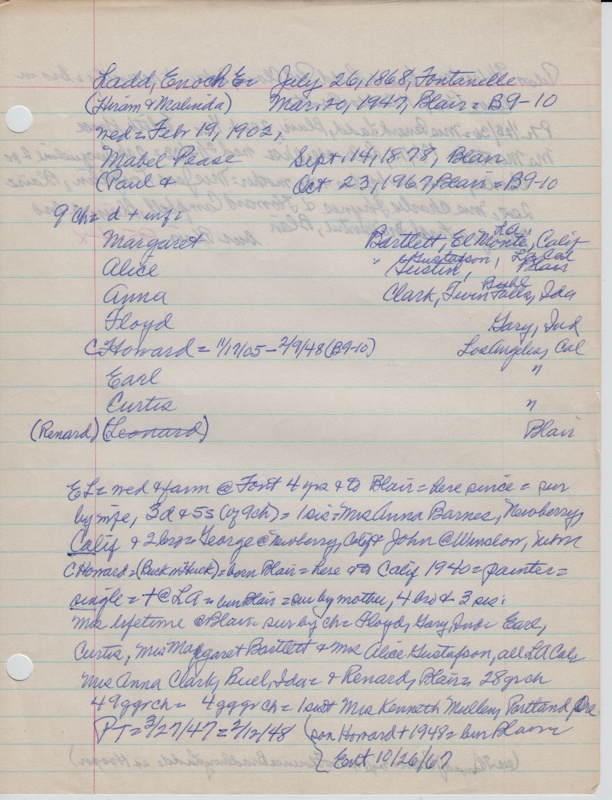 Ladd, Enoch E = July 26, 1868, Fontanelle
(Hiram & Malinda) Mar. 20, 1947, Blair = B9-10
med = Febr 19, 1902,
Mabel Pease Sept. 14, 1878, Blair
(Paul & Oct 23, 1967, Blair = B9-10
9 ch = d + inf:
Margaret Bartlett, El Monte, Calif
LA
Alice " Gustafson, LA Cal
Gustin, Blair
Anna Clark, Twin Falls, Ida
Buhl
Floyd Gary, Ind
C Howard = 11/17/05 - 2/9/48 (B9-10) Los Angeles, Cal
Earl "
Curtis "
(Renard) (Leonard) Blair
EL = med & farm @ Font 4 yrs & to Blair = here since = sur
by wife, 3d & 5s (of 9ch) = 1 sis = Mrs Anna Barnes, Newberry,
Calif & 2 bro = George @ Newberry, Calif & John @ Winslow,
C Howard = (Buck ) = born Blair = here & to Calif 1940 = painter =
single = + @ LA = bur Blair = sur by mother, 4 bro & 3 sis:
Mrs lifetime @ Blair = sur by ch = Floyd, Gary, Ind = Earl,
Curtis, Mrs Margaret Bartlett & Mrs Alice Gustafson, all LA Cal
Mrs Anna Clark, Buel, Ida = & Renard, Blair = 28 grch
49 ggrch = 4 gggrch = 1 sis = Mrs Kenneth Mullen, Portland, Ore
PT = 3/27/47 = 2/12/48 (son Howard + 1948 = bur Blair =
Ent 10/26/67